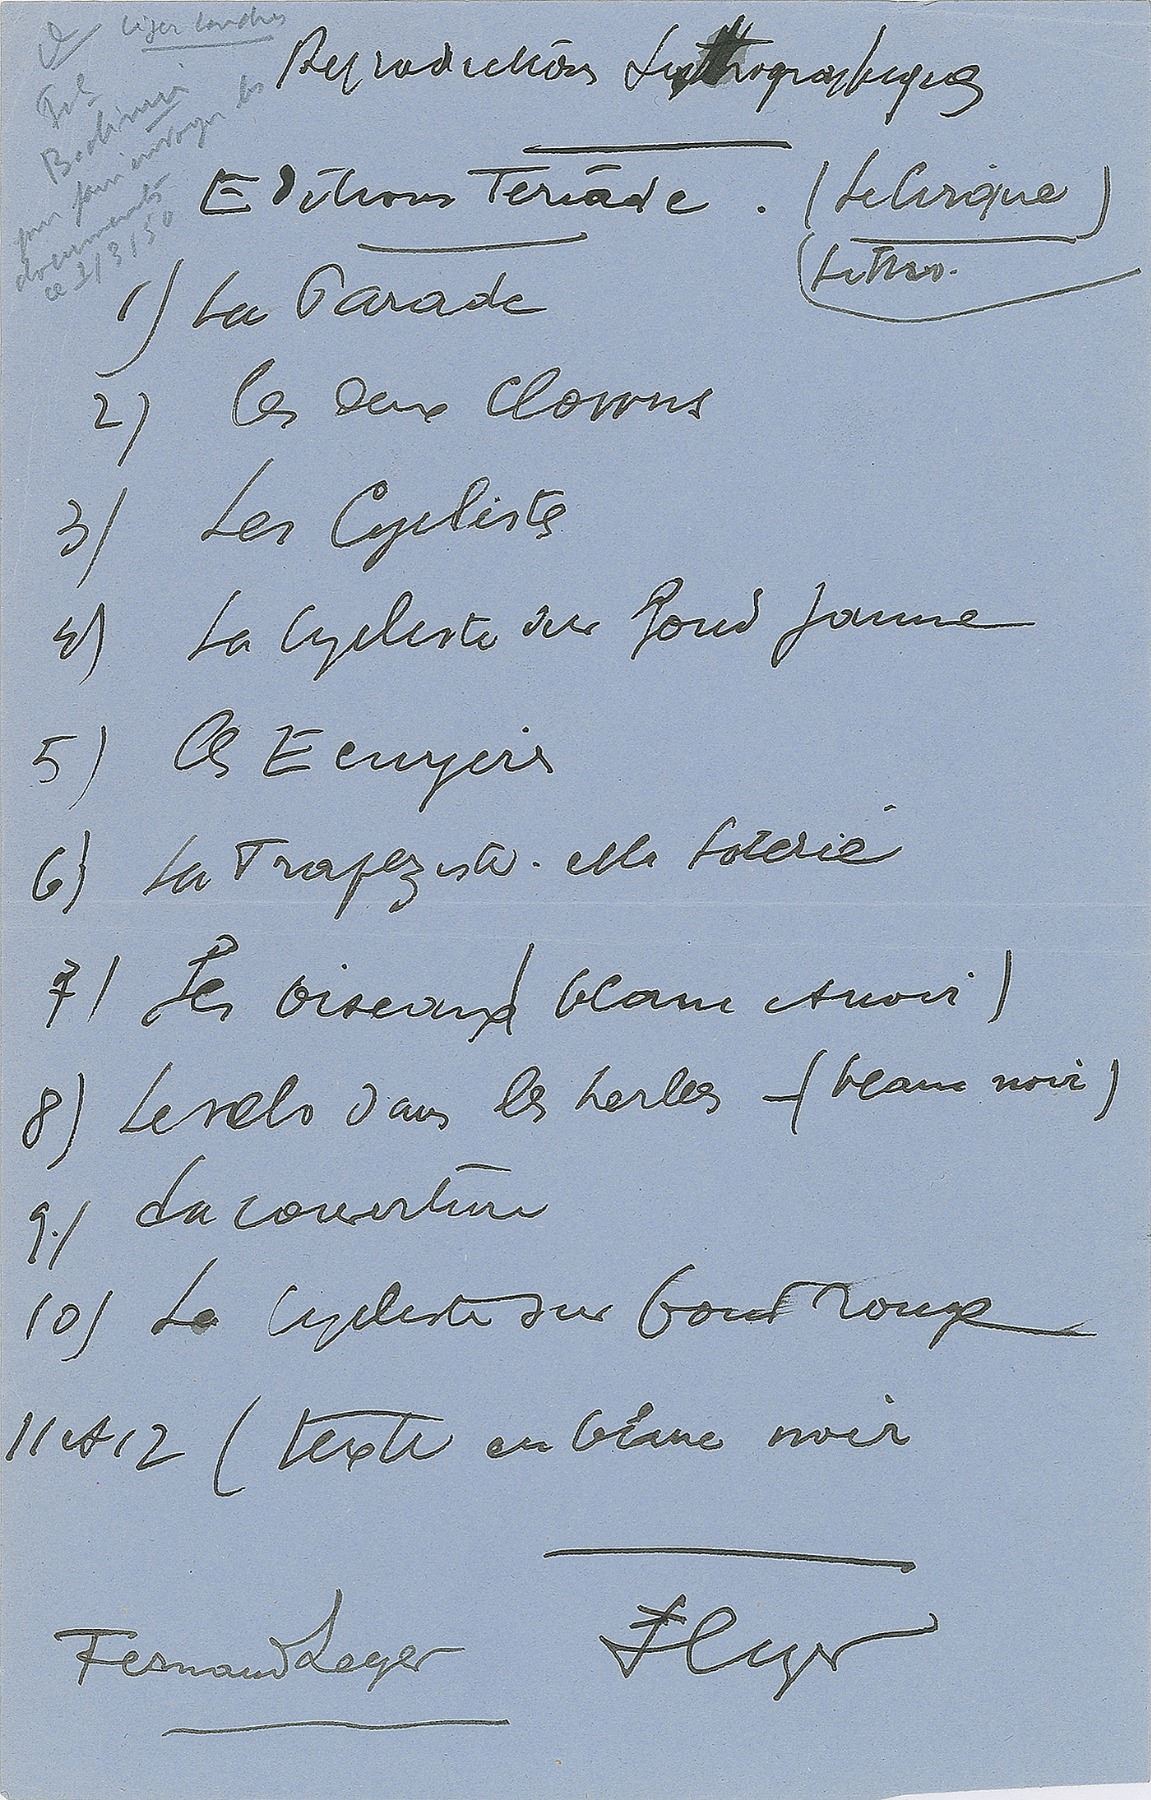 Leger Londres
Tel
Bodinier
pour faire envoyer les
documents
ce 2/3/50
Reproductions Lithographiques
Editions Teriade . (Le Cirque)
(Litho.
1) La Parade
2) Les deux Clowns
3/ Les Cyclistes
4) La Cycliste sur fond jaune
5) Les Ecuyeres
6) La Trapeziste. et la Loterie
7/ Les oiseaux (blanc et noir)
8) Le velo dans les herbes - (blanc noir)
9./ La couverture
10) La Cycliste sur fond rouge
11 et 12 (texte en blanc noir
Fernand Leger
FLeger